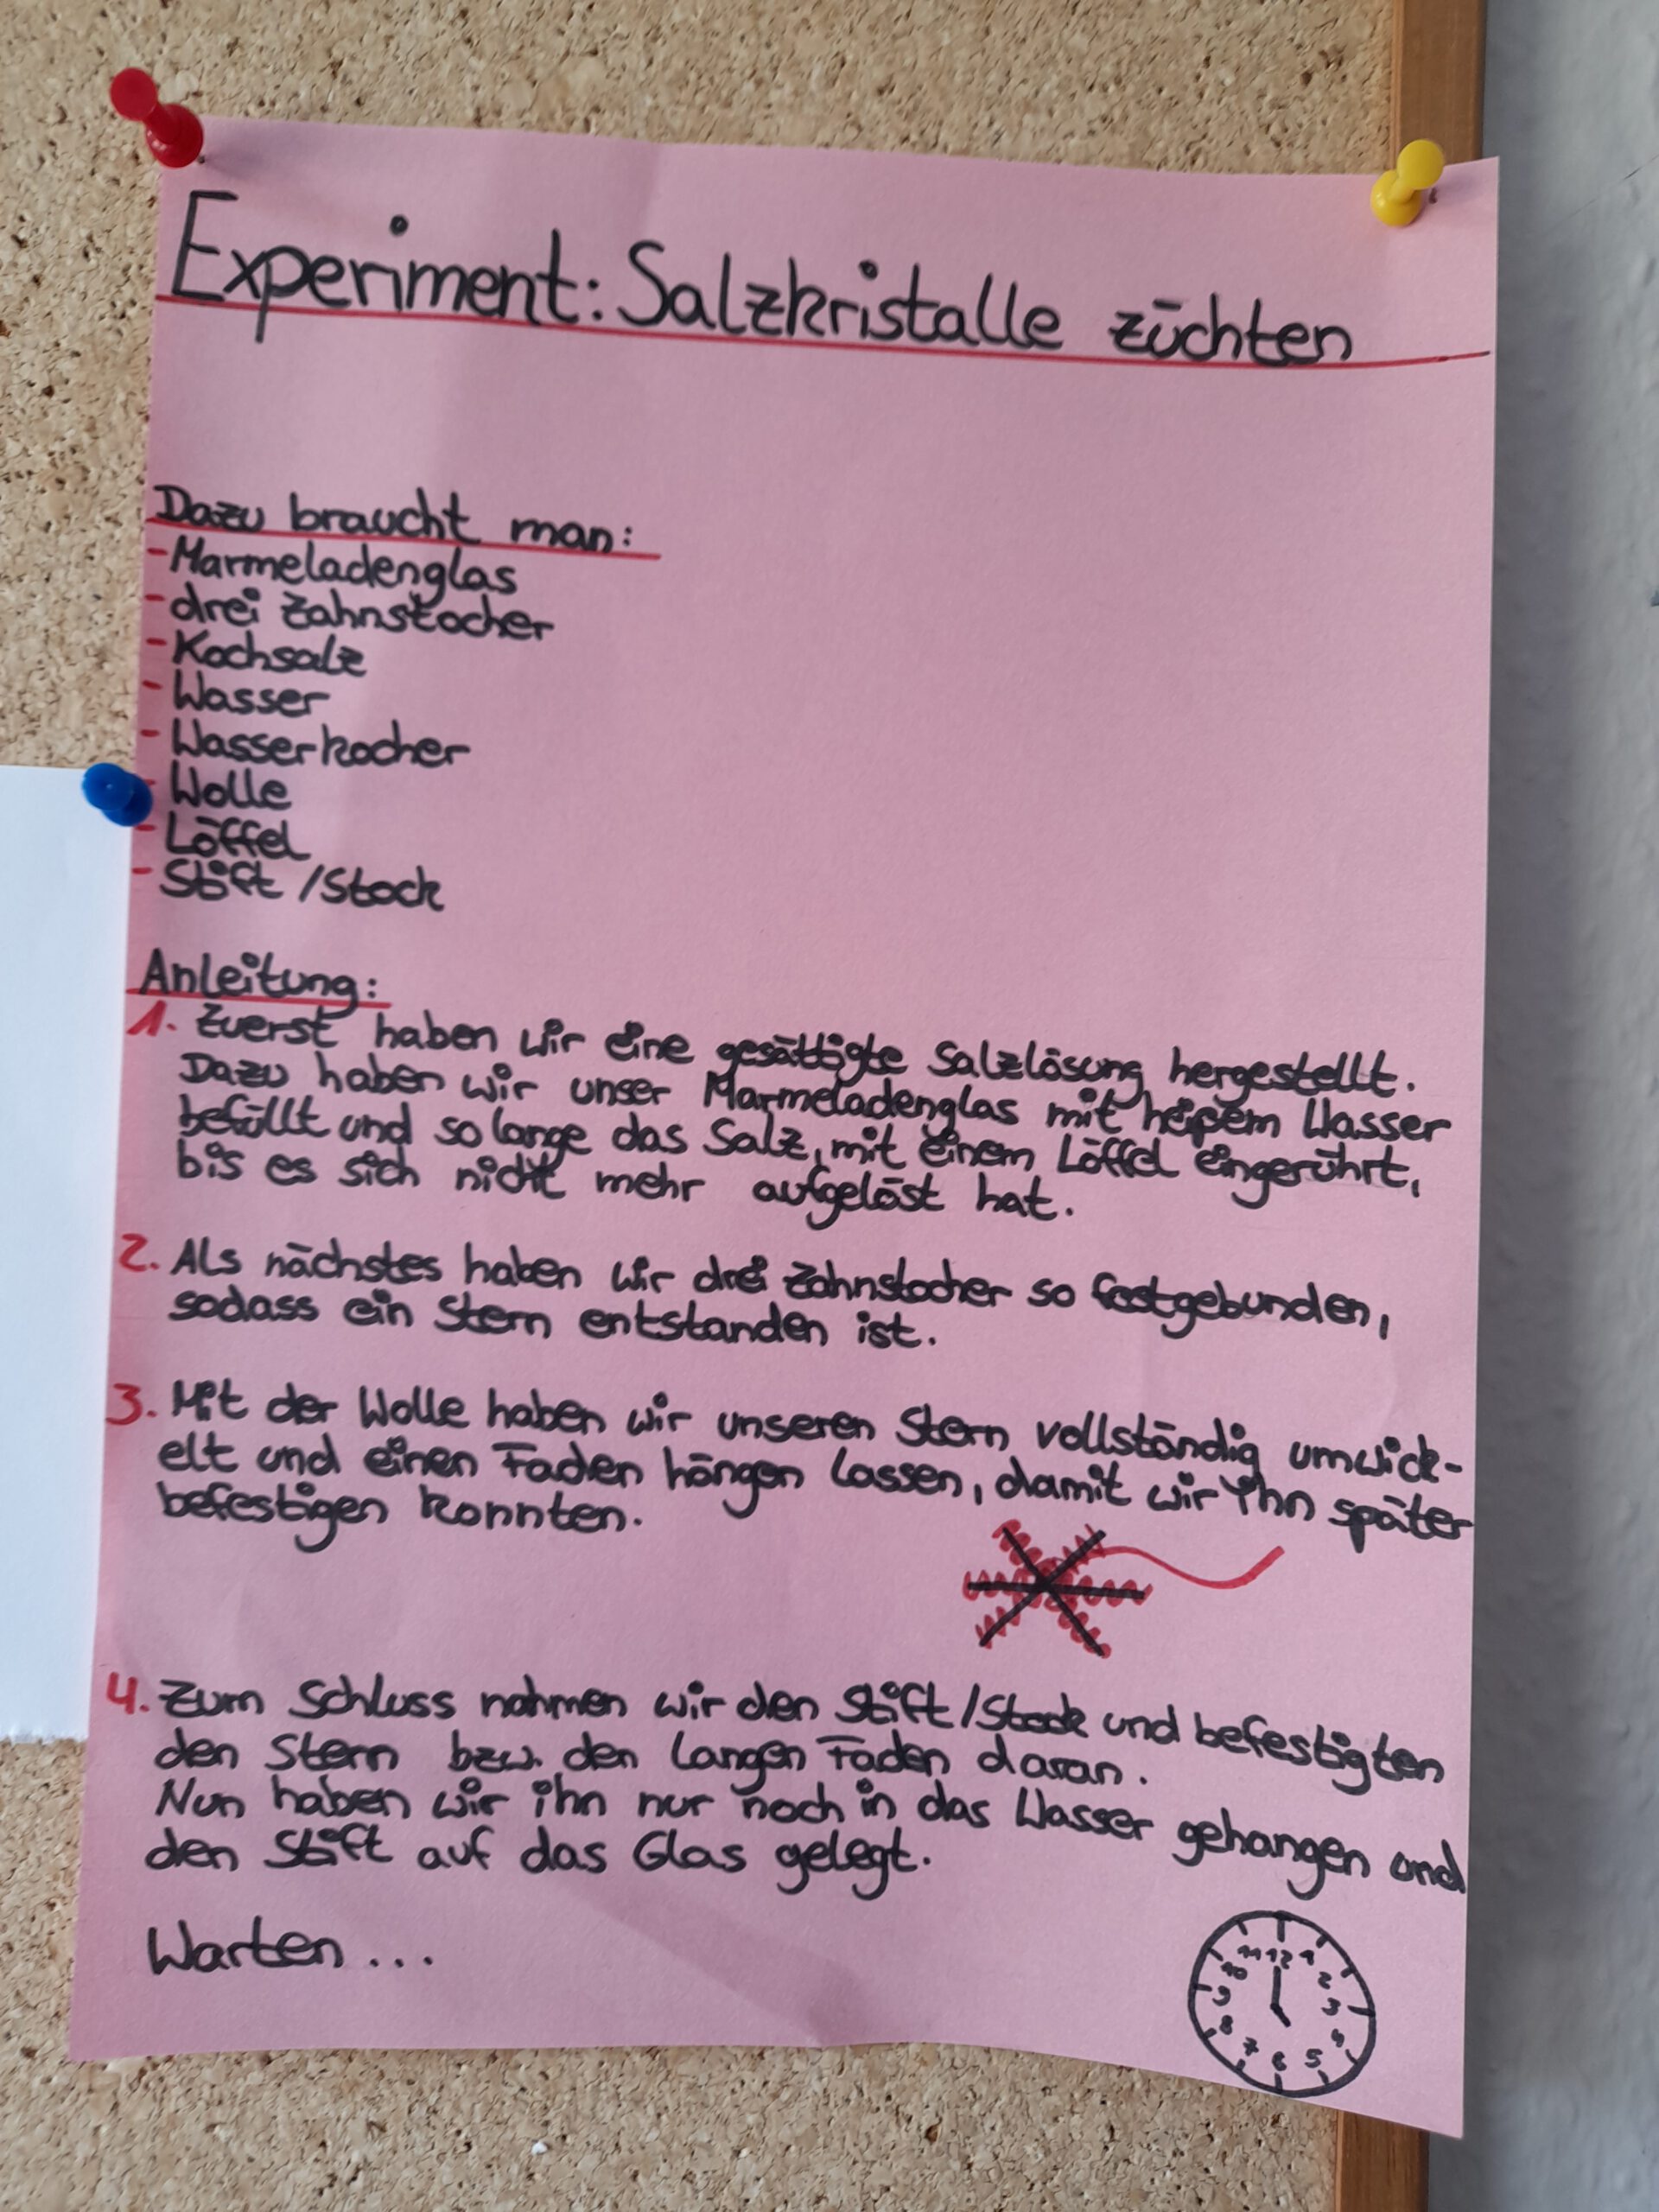 Experiment: Salzkristalle züchten
Dazu braucht man:
- Marmeladenglas
- drei Zahnstocher
- Kochsalz
- Wasser
- Wasserkocher
- Wolle
- Löffel
- Stift / Stock
Anleitung:
1. Zuerst haben wir eine gesättigte Salzlösung hergestellt.
Dazu haben wir unser Marmeladenglas mit heißem Wasser
befüllt und so lange das Salz, mit einem Löffel eingerührt,
bis es sich nicht mehr aufgelöst hat.
2. Als nächstes haben wir drei Zahnstocher so festgebunden,
sodass ein Stern entstanden ist.
3. Mit der Wolle haben wir unseren Stern vollständig umwick-
elt und einen Faden hängen lassen, damit wir ihn später
befestigen konnten.
4. Zum Schluss nahmen wir den Stift / Stock und befestigten
den Stern bzw. den langen Faden daran.
Nun haben wir ihn nur noch in das Wasser gehangen und
den Stift auf das Glas gelegt.
Warten...
11 12 1
10 2
9 3
8 4
7 6 5